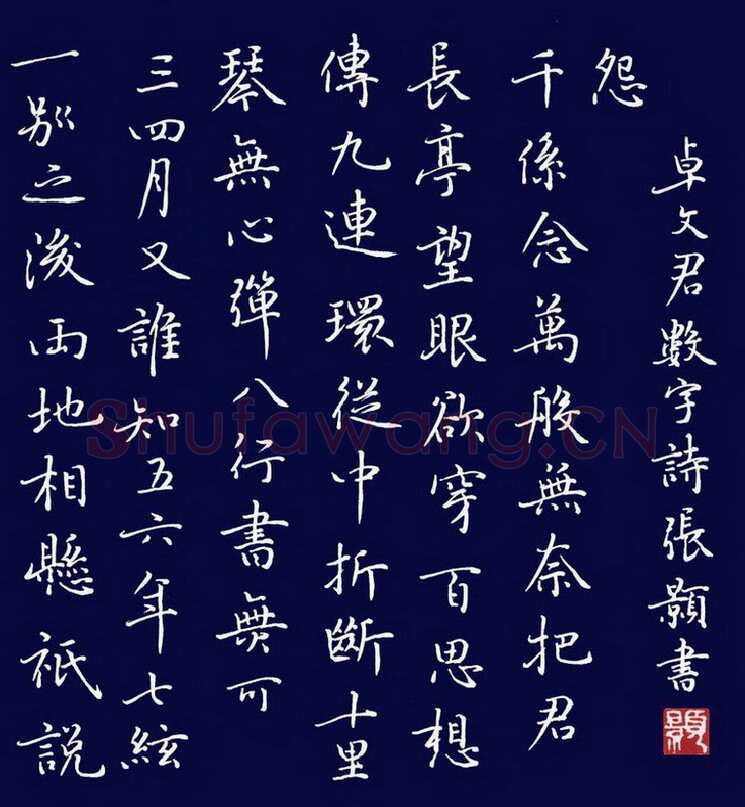 一别之後兩地相懸祇說
三四月又誰知五六年七絃
琴無心彈八行書無可
傳九連環從中折斷十里
長亭望眼欲穿百思想
千係念萬般無奈把君
怨
卓文君數字詩張顥書
Shufawang.CN